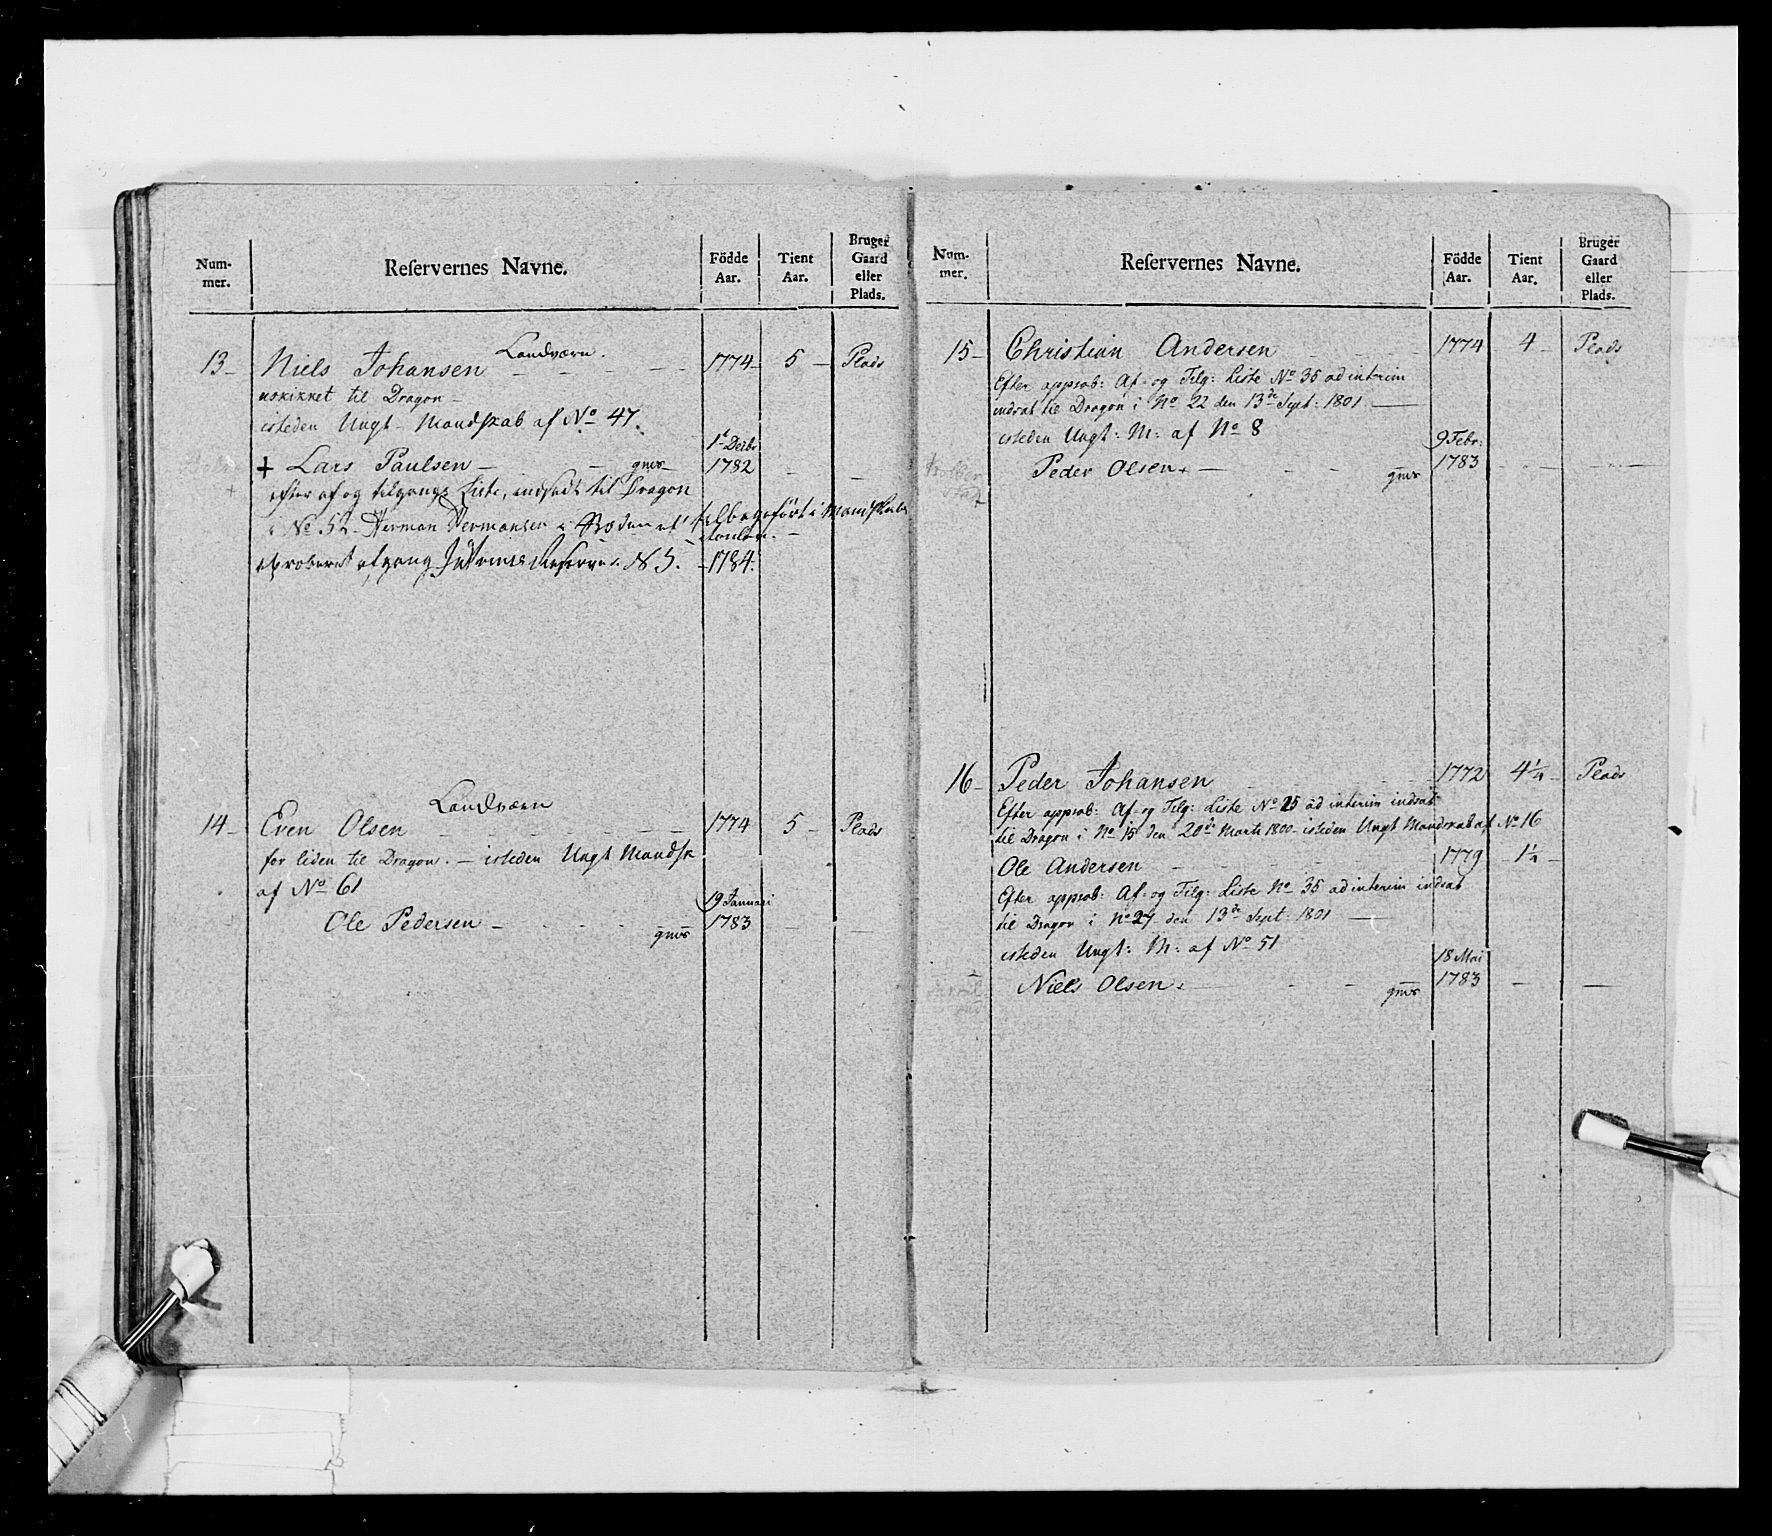 Num-
mer.
Reservernes Navne.
Födde
Aar.
Tient
Aar.
Bruger
Gaard
eller
Plads.
Landværn.
13 Niels Johansen 1774 5 Plads
uskikket til Dragon
isteden Ungt Mandskab af No 47.
1t Decbr
+ Lars Paulsen gevor 1782
efter af og tilgangs Liste, indsadt til Dragon
i No 52 Herman Hermansen tilbageført i Mandskabs
Roullen.
afgang Reserve N 5. 1784.
Landværn
14 Even Olsen 1774 5 Plads
for liden til Dragon. isteden Ungt Mandsk
af No 61
19 Januari
Ole Pedersen gevor 1783
Num-
mer.
Reservernes Navne.
Födde
Aar.
Tient
Aar.
Bruger
Gaard
eller
Plads.
15 Christian Andersen 1774 4 Plads
Efter approb: Af- og Tilg: Liste No 36 ad interim
indsat til Dragon i No 22 den 13de Sept: 1801
isteden Ungt: M: af No 8
9 Febr:
Peder Olsen gevor 1783
16 Peder Johansen 1772 4¼ Plads
Efter approb: Af- og Tilg: Liste No 25 ad interim indsat
til Dragon i No 15 den 20de Marti 1800 isteden Ungt Mandskab af No 16
Ole Andersen 1779 1¼
Efter approb: Af- og Tilg: Liste No 36 ad interim indsat
til Dragon i No 27 den 13de Sept: 1801
isteden Ungt: M: af No 51
18 Mai
Niels Olsen gevor 1783